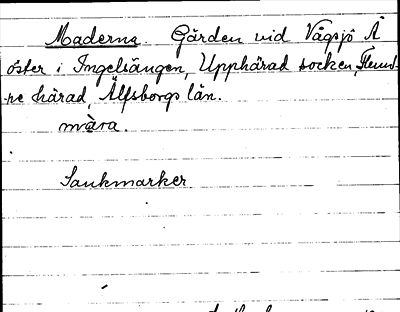 Maderna. Gården vid Vågsjö Å
öster i Ingelsängen, Upphärad socken, Flund-
re härad, Älfsborgs län.
màra.
Sankmarker